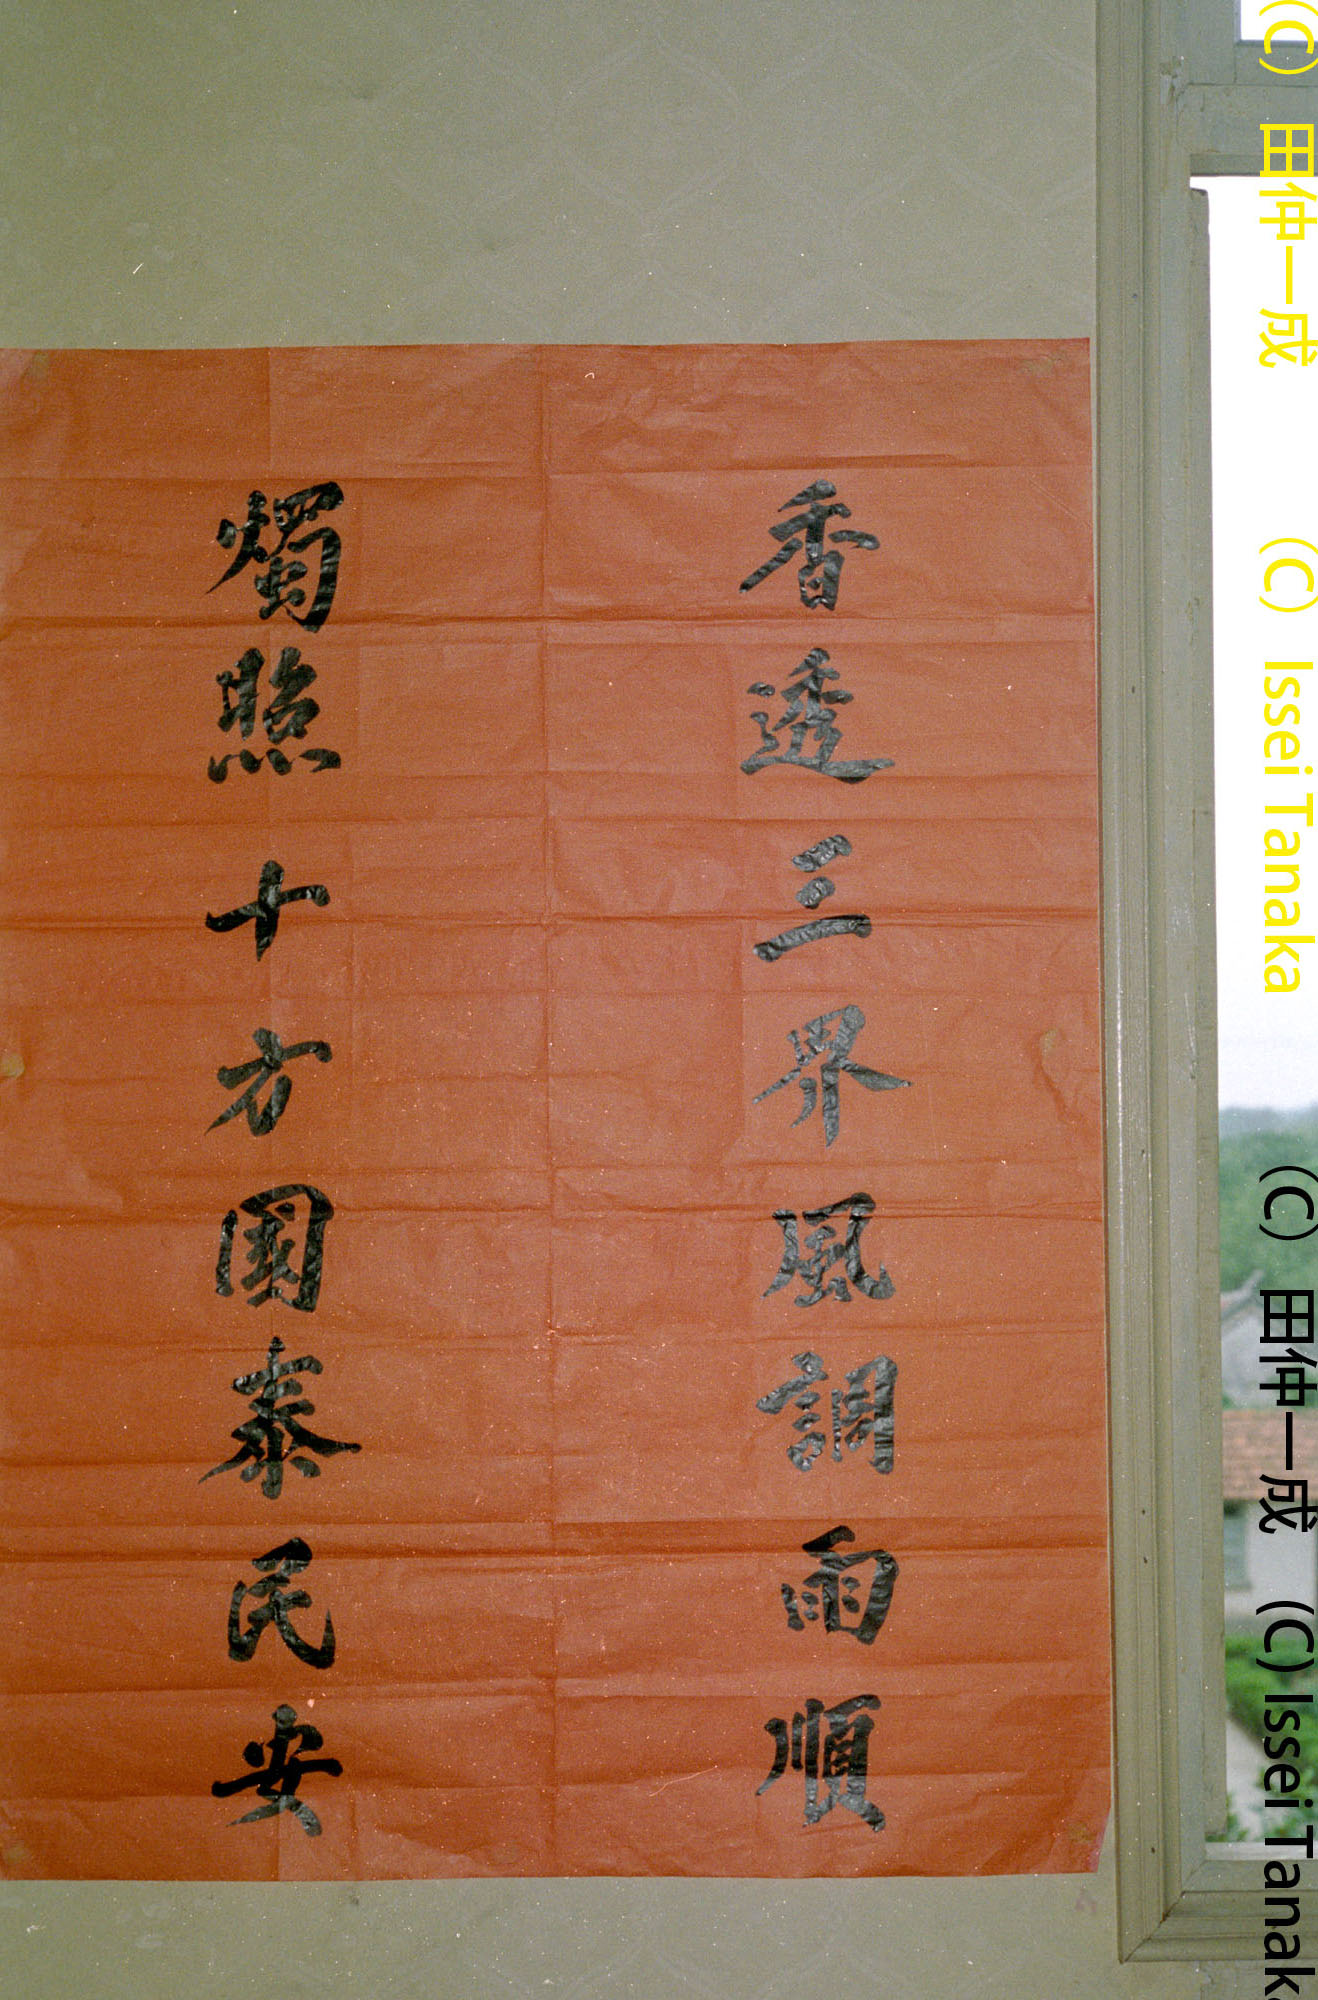 香透三界風調雨順
燭照十方國泰民安
(C) 田仲一成
(C) Issei Tanaka
(C) 田仲一成
(C) Issei Tanaka